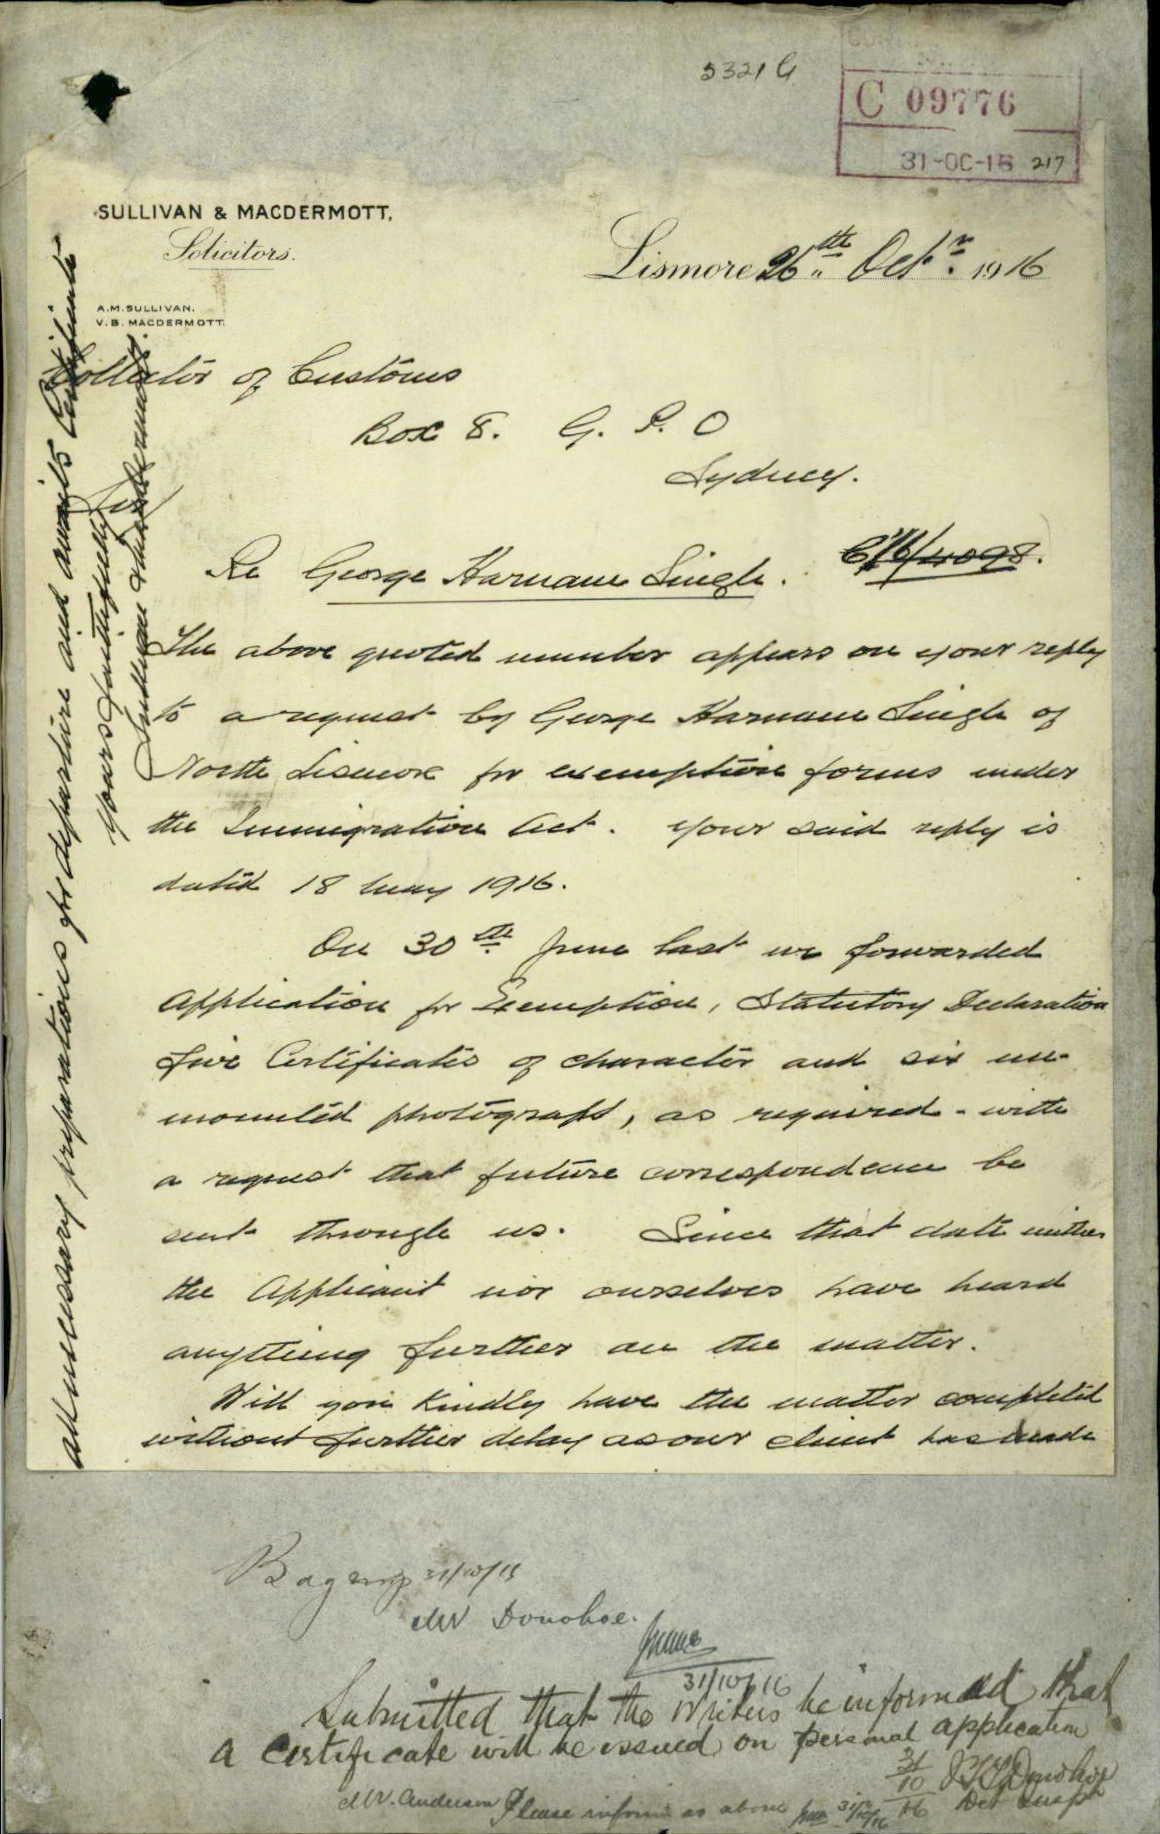 5321 G
C 09776
31-OC-16 217
SULLIVAN & MACDERMOTT,
Solicitors.
Lismore 26th Octr. 1916
A.M. SULLIVAN.
V.B. MACDERMOTT.
Collector of Customs
Box 8. G. P. O
Sydney.
Sir
Re George Harnam Singh. C16/4098.
The above quoted number appears on your reply
to a request by George Harnam Singh of
North Lismore for exemption forms under
the Immigration Act. Your said reply is
dated 18 May 1916.
On 30th June last we forwarded
Application for Exemption, Statutory Declaration
Five Certificates of character and six un-
mounted photographs, as required - with
a request that future correspondence be
sent through us. Since that date neither
the Applicant nor ourselves have heard
anything further on the matter.
Will you kindly have the matter completed
without further delay as our client has made
all necessary preparations for departure and awaits Certificate
Yours faithfully
Sullivan & Macdermott.
31/10/16
Mr Donohoe.
31/10/16
Submitted that the Writers be informed that
a certificate will be issued on personal application
31/10/16 Donohoe
Det Insp
Mr. Anderson Please inform as above 31/10/16